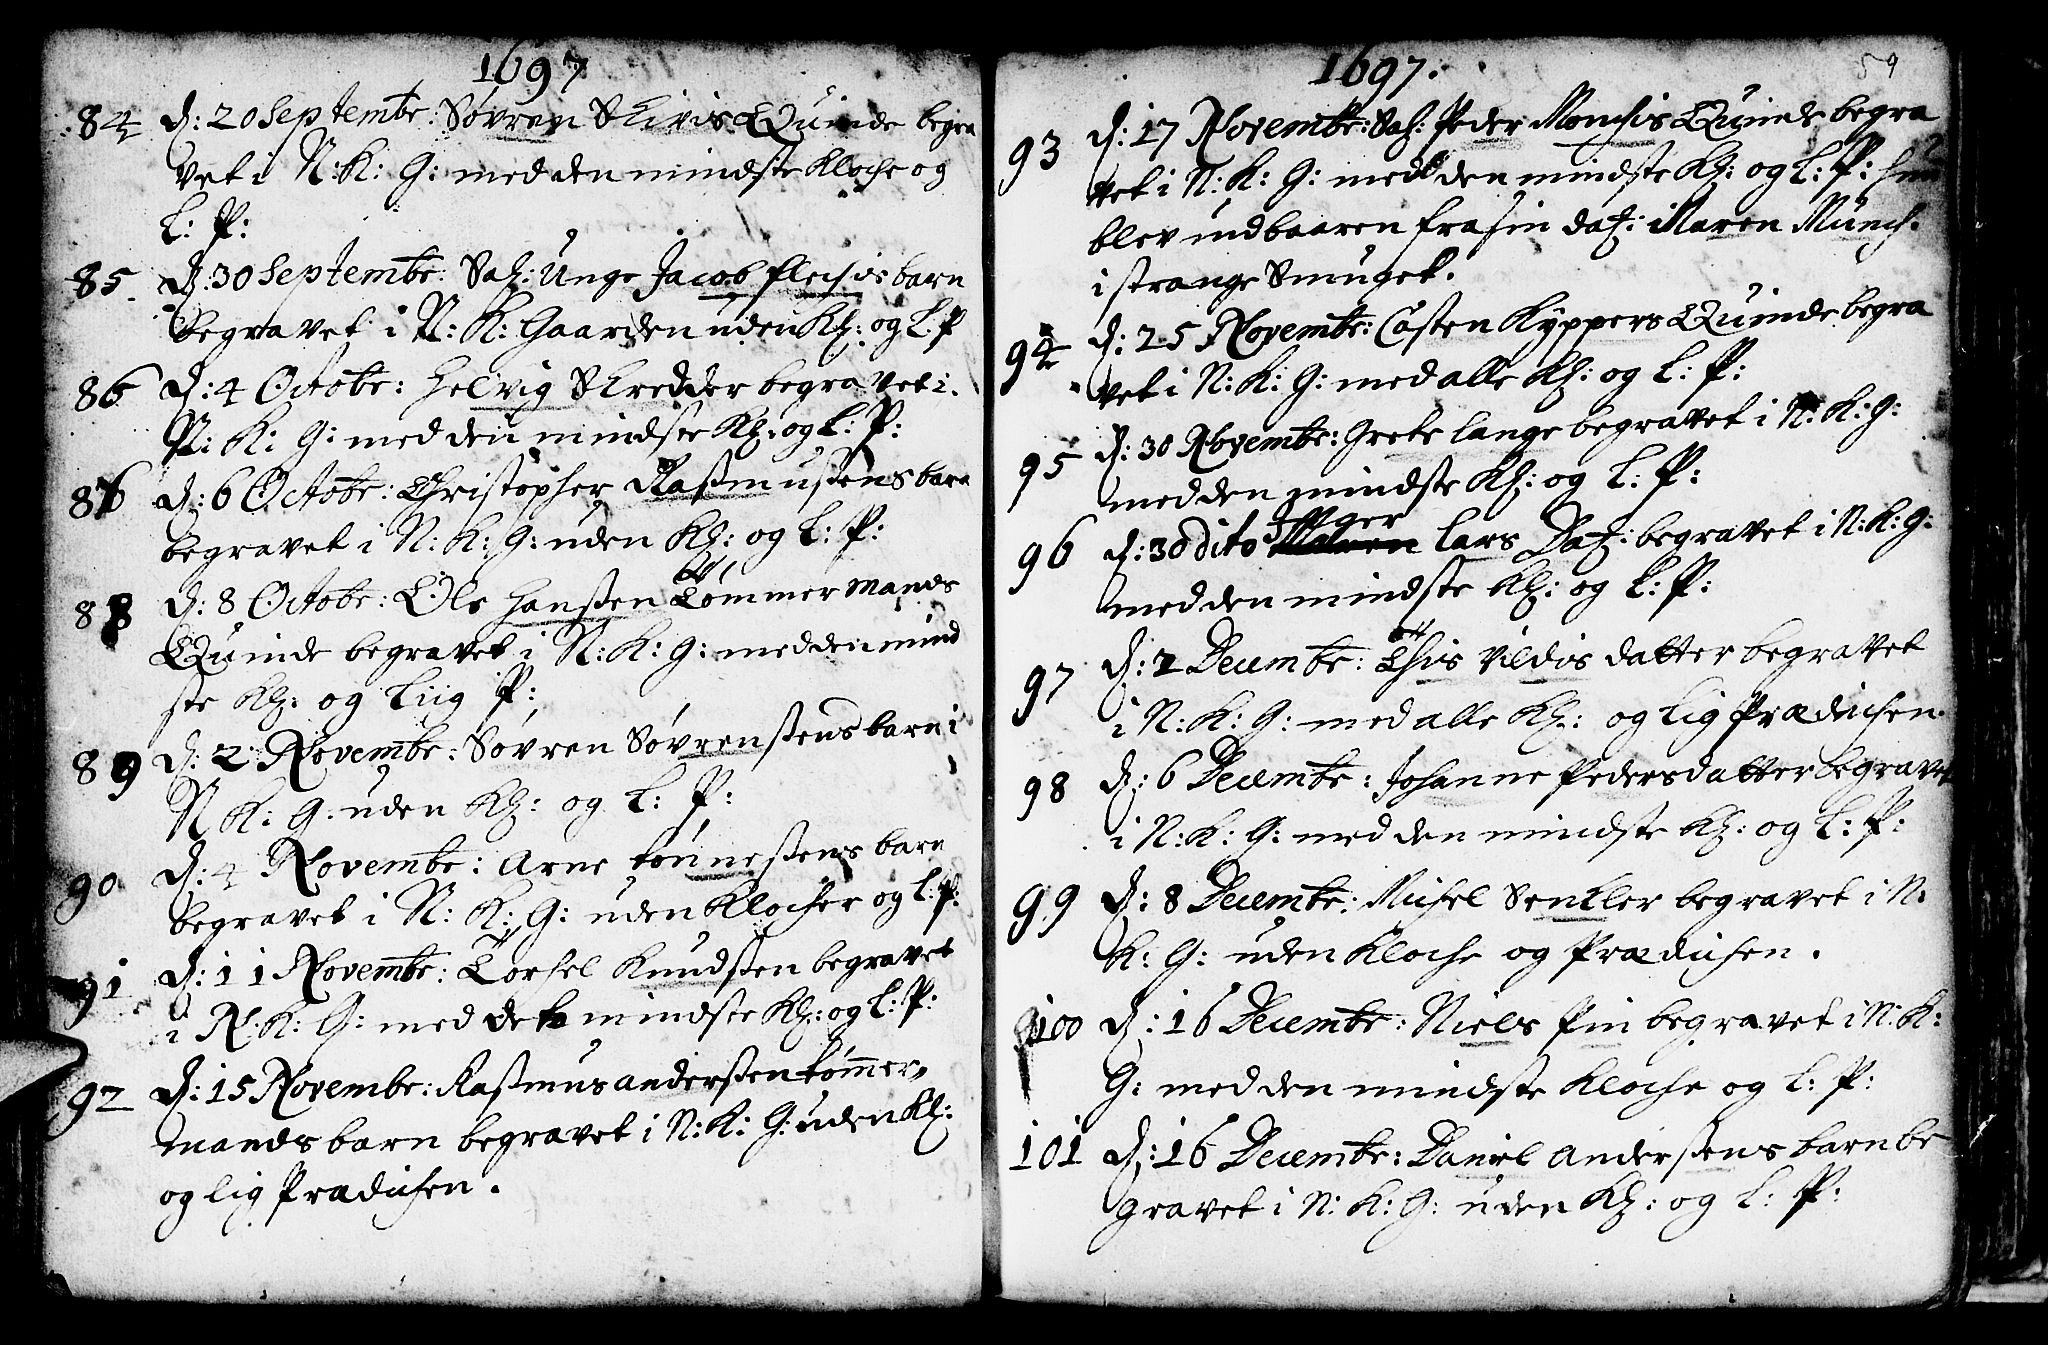 1697
84 d: 20 Septembr: Søvren Skivis Quinde begra
vet i N: K: G: med den mindste Kloche og
L: P:
85. d: 30 Septembr: Sal: Unge Jacob flechis barn
begravet i N: K: Gaarden uden Kl: og L. P
86 d: 4 Octobr: Helvig Skredder begravet i
N: K: G: med den mindste Kl: og L: P:
87 d: 6 Octobr: Christopher Rasmussens barn
begravet i N: K: G: uden Kl: og L: P:
88 d: 8 Octobr: Ole Hanssen Tømmermands
Quinde begravet i N: K: G: med den mind
ste Kl: og Liig P:
89 d: 2 Novembr: Søvren Søvrenssens barn i
N K: G: uden Kl: og L: P:
90 d: 4 Novembr: Arne tønnessens barn
begravet i N: K: G: uden Klocher og L: P:
91 d: 11 Novembr: Torchel Knudssen begravet
i N. K: G: med de mindste Kl: og L: P:
92 d: 15 Novembr: Rasmus anderssen tømer,,
mands barn begravet i N: K: G: uden Kl:
og lig Prædichen.
1697. 59
93 d: 17 Novembr: Sal: Peder Monchis Quinde begra
vet i N: K: G: med den mindste Kl: og L: P: hun
blev udbaaren fra sin dat: Maren Munch.
i strange Smuget.
94 d: 25 Novembr: Casten Kyppers Quinde begra
vet i N: K: G: med alle Kl: og L: P:
95 d: 30 Novembr: Grete lange begravet i N: K: G:
med den mindste Kl: og L: P:
96 d: 30 dito Lars Dat: begravet i N: K: G:
med den mindste Kl: og L: P:
97 d: 2 Decembr: This Vildis datter begravet
i N: K: G: med alle Kl: og lig Prædichen.
98 d: 6 Decembr: Johanne Pedersdatter begravet
i N: K: G: med den mindste Kl: og L: P:
99 d: 8 Decembr: Michel Senkler begravet i N:
K: G: uden Kloche og Prædichen.
100 d: 16 Decembr: Niels Pin begravet i N: K:
G: med den mindste Kloche og L: P:
101 d: 16 Decembr: Daniel Anderssens barn be
gravet i N: K: G: uden Kl: og L: P: